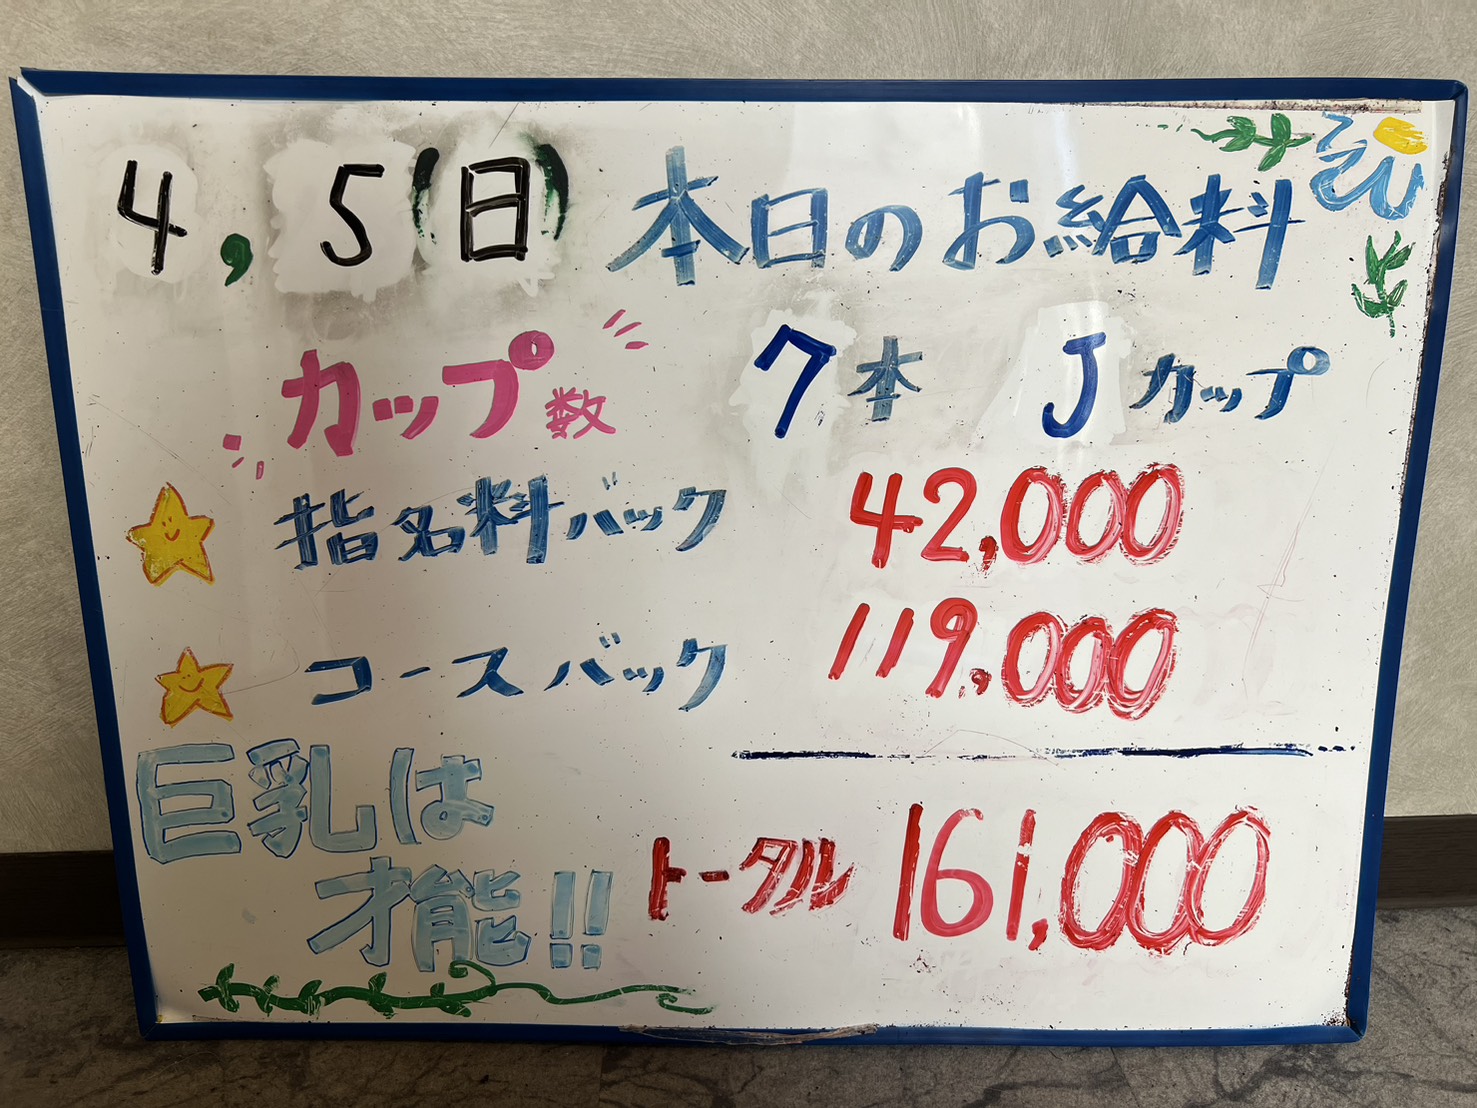 4, 5(日) 本日のお給料
カップ数 7本 Jカップ
指名料バック 42,000
コースバック 119,000
巨乳は
才能!!
トータル 161,000